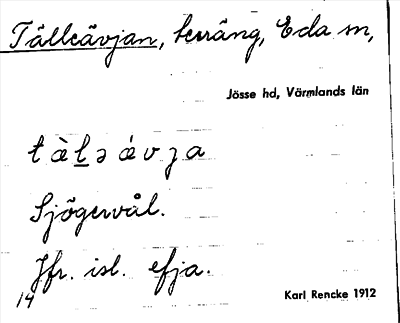 Tälleävjan, terräng, Eda sn,
Jösse hd, Värmlands län
tàḻəávja
Sjögervål.
Jfr. isl. efja.
14
Karl Rencke 1912